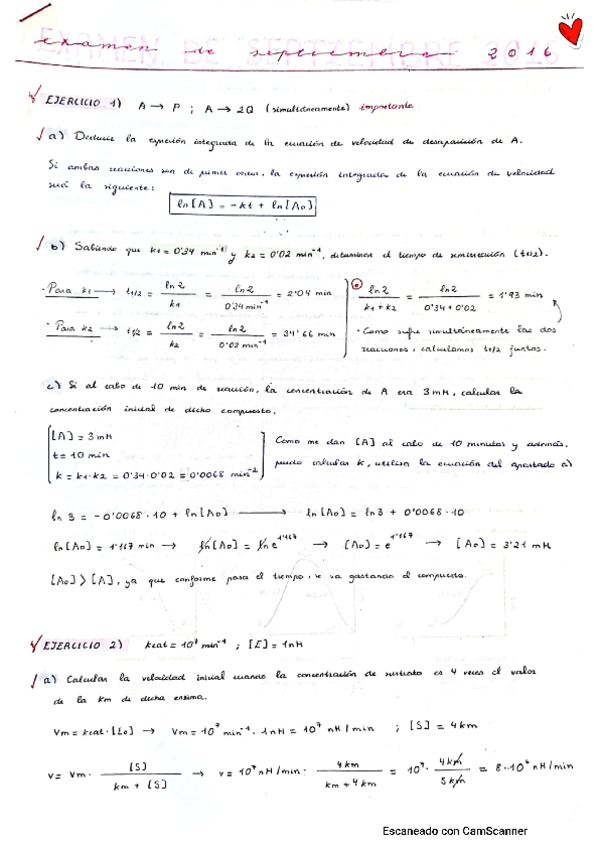 examen de septiembre 2016
EJERCICIO 1) A → P ; A → 2Q (simultáneamente) importante
a) Deducir la expresión integrada de la ecuación de velocidad de desaparición de A.
Si ambas reacciones son de primer orden, la expresión integrada de la ecuación de velocidad
será la siguiente:
ln[A] = -kt + ln[A₀]
b) Sabiendo que k₁ = 0'34 min⁻¹ y k₂ = 0'02 min⁻¹, determinar el tiempo de semirreacción (t1/2).
· Para k₁ → t1/2 = ln2 / k₁ = ln2 / 0'34 min⁻¹ = 2'04 min
· Para k₂ → t1/2 = ln2 / k₂ = ln2 / 0'02 min⁻¹ = 34'66 min
ln2 / k₁+k₂ = ln2 / 0'34+0'02 = 1'93 min
· Como sufre simultáneamente las dos
reacciones, calculamos t1/2 juntas.
c) Si al cabo de 10 min de reacción, la concentración de A era 3mM, calcular la
concentración inicial de dicho compuesto.
[A] = 3mM
t = 10 min
k = k₁·k₂ = 0'34·0'02 = 0'0068 min⁻²
Como me dan [A] al cabo de 10 minutos y además,
puedo calcular k, utilizo la ecuación del apartado a)
ln 3 = -0'0068·10 + ln[A₀] → ln[A₀] = ln3 + 0'0068·10
ln[A₀] = 1'167 min → ln[A₀] = ln e^1'167 → [A₀] = e^1'167 → [A₀] = 3'21 mM
[A₀] > [A], ya que conforme pasa el tiempo, se va gastando el compuesto.
EJERCICIO 2) kcat = 10⁷ min⁻¹ ; [E] = 1nM
a) Calcular la velocidad inicial cuando la concentración de sustrato es 4 veces el valor
de la Km de dicha enzima.
Vm = kcat·[E₀] → Vm = 10⁷ min⁻¹ · 1nM = 10⁷ nM/min ; [S] = 4km
v = Vm · [S] / km + [S] → v = 10⁷ nM/min · 4km / km + 4km = 10⁷ · 4km / 5km = 8·10⁶ nM/min
Escaneado con CamScanner